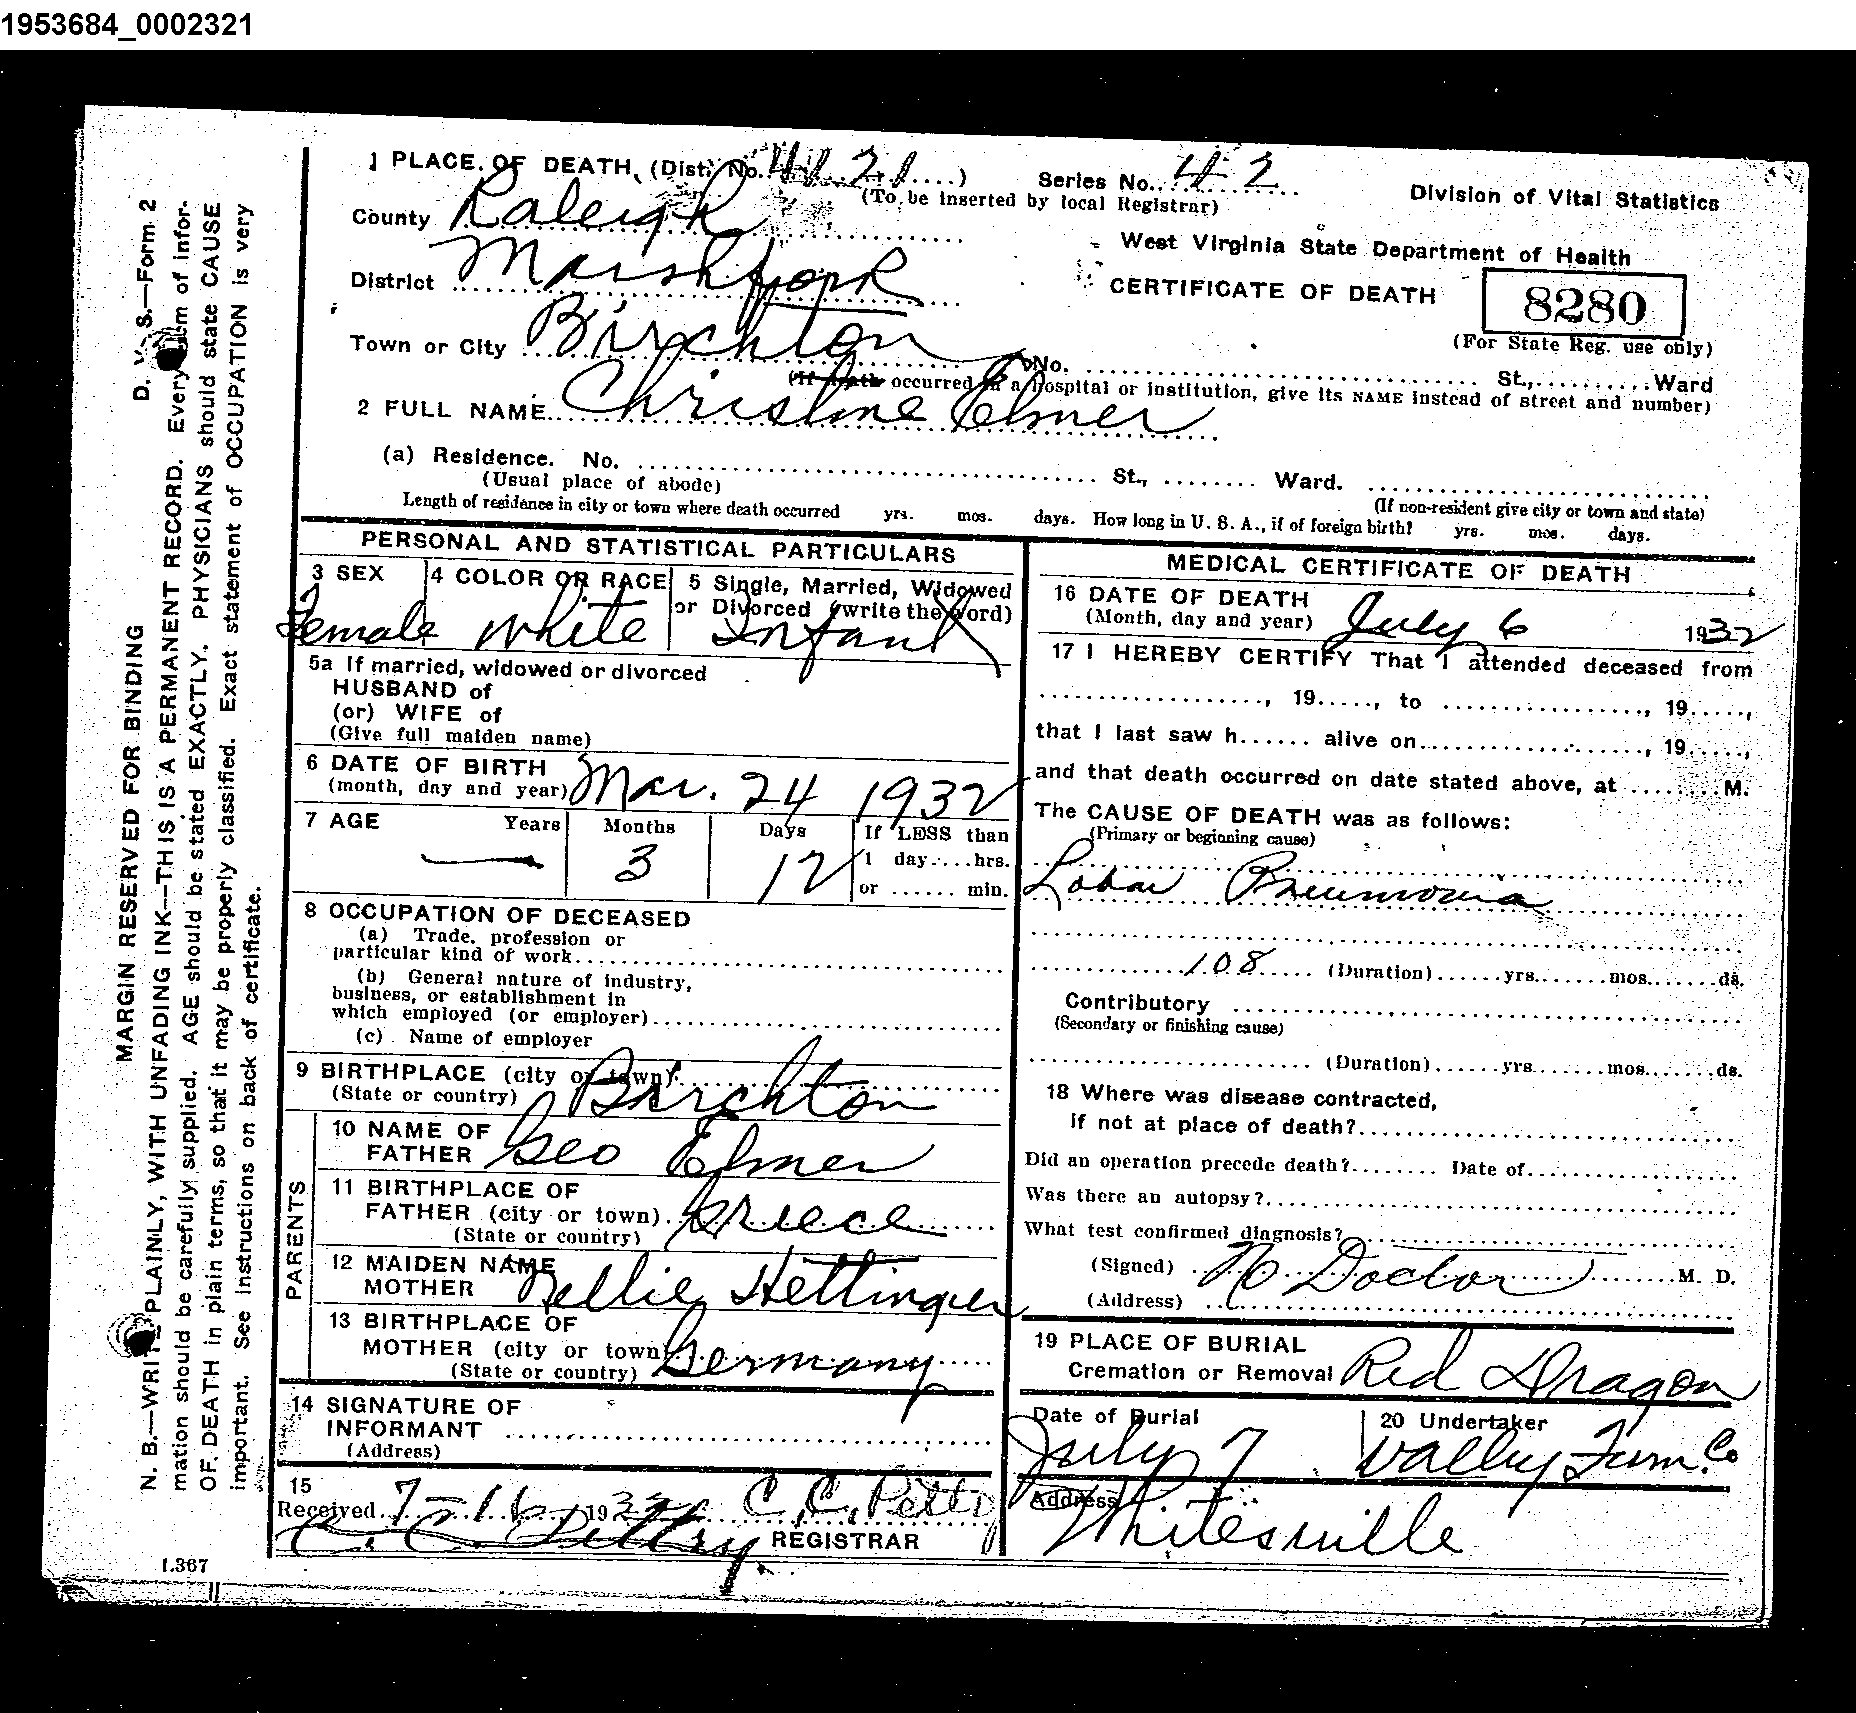 1953684_0002321
1 PLACE OF DEATH (Dist. No. 41 21 ....) Series No. 42
(To be inserted by local Registrar)
Division of Vital Statistics
County Raleigh
West Virginia State Department of Health
District Marshfork
CERTIFICATE OF DEATH 8280
(For State Reg. use only)
Town or City Birchton No. St., Ward
(If death occurred in a hospital or institution, give its NAME instead of street and number)
2 FULL NAME Christine Elmer
(a) Residence. No. St., Ward.
(Usual place of abode) (If non-resident give city or town and state)
Length of residence in city or town where death occurred yrs. mos. days. How long in U. S. A., if of foreign birth? yrs. mos. days.
PERSONAL AND STATISTICAL PARTICULARS
3 SEX 4 COLOR OR RACE 5 Single, Married, Widowed
or Divorced (write the word)
Female White Infant
5a If married, widowed or divorced
HUSBAND of
(or) WIFE of
(Give full maiden name)
6 DATE OF BIRTH
(month, day and year) Mar. 24 1932
7 AGE Years Months Days If LESS than
1 day....hrs.
or ...... min.
— 3 12
8 OCCUPATION OF DECEASED
(a) Trade, profession or
particular kind of work
(b) General nature of industry,
business, or establishment in
which employed (or employer)
(c) Name of employer
9 BIRTHPLACE (city or town)
(State or country) Birchton
PARENTS
10 NAME OF
FATHER Geo Elmer
11 BIRTHPLACE OF
FATHER (city or town) Griece
(State or country)
12 MAIDEN NAME
MOTHER Nellie Hettinger
13 BIRTHPLACE OF
MOTHER (city or town) Germany
(State or country)
14 SIGNATURE OF
INFORMANT
(Address)
15
Received 7-16, 1932 C. C. Petty
C. C. Pettry. REGISTRAR
1.367
MEDICAL CERTIFICATE OF DEATH
16 DATE OF DEATH
(Month, day and year) July 6 1932
17 I HEREBY CERTIFY That I attended deceased from
, 19....., to , 19.....,
that I last saw h...... alive on , 19.....,
and that death occurred on date stated above, at ........M.
The CAUSE OF DEATH was as follows:
(Primary or beginning cause)
Lobar Pneumonia
108 (Duration)......yrs.......mos.......ds.
Contributory
(Secondary or finishing cause)
(Duration)......yrs.......mos.......ds.
18 Where was disease contracted,
if not at place of death?
Did an operation precede death?........ Date of
Was there an autopsy?
What test confirmed diagnosis?
(Signed) No Doctor M. D.
(Address)
19 PLACE OF BURIAL
Cremation or Removal Red Dragon
Date of Burial 20 Undertaker
July 7 Valley Furn. Co
Address
Whitesville
D. V. S.—Form 2
MARGIN RESERVED FOR BINDING
N. B.—WRITE PLAINLY, WITH UNFADING INK—THIS IS A PERMANENT RECORD. Every item of infor-
mation should be carefully supplied. AGE should be stated EXACTLY. PHYSICIANS should state CAUSE
OF DEATH in plain terms, so that it may be properly classified. Exact statement of OCCUPATION is very
important. See instructions on back of certificate.